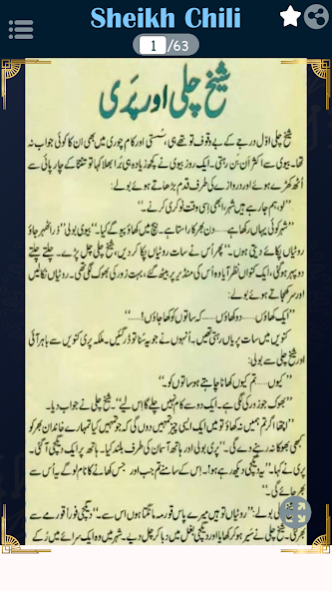 Sheikh Chili
1 /63
شیخ چلی اور پَری
شیخ چلی اوّل درجے کے بے وقوف تو تھے ہی، سُستی اور کام چوری میں بھی ان کا کوئی جواب نہ
تھا۔ بیوی سے اکثر اَن بن رہتی۔ ایک روز بیوی نے کچھ زیادہ ہی بُرا بھلا کہا تو تنتنا کے چارپائی سے
اُٹھ کھڑے ہوئے اور دروازے کی طرف قدم بڑھاتے ہوئے بولے:
”لو ہم جا رہے ہیں شہر، ابھی اسی وقت نوکری کرنے۔“
”شہر کوئی یہاں رکھا ہے۔۔۔ دن بھر کا راستا ہے۔ بیچ میں کھاؤ پیو گے کیا۔“ بیوی بولی ”ذرا ٹھہر جاؤ
روٹیاں پکائے دیتی ہوں۔“ پھر اُس نے سات روٹیاں پکا کر دیں، شیخ چلی چل پڑے۔ چلتے چلتے
دوپہر ہو گئی، ایک کنواں نظر آیا وہ اُس کی منڈیر پر بیٹھ گئے، بہت زور کی بھوک لگی تھی۔ روٹیاں نکالیں
اور سر کھجاتے ہوئے بولے:
”ایک کھاؤں۔۔۔ دو کھاؤں۔۔۔ کہ ساتوں کو کھا جاؤں!۔۔۔“
کنویں میں سات پریاں رہتی تھیں۔ اُنہوں نے جو یہ سُنا تو ڈر گئیں۔ ملکہ پری کنویں سے باہر آئی
اور شیخ چلی سے بولی:
”کیوں۔۔۔ تم کیوں کھانا چاہتے ہو ساتوں کو۔“
”بھوک جو زور کی لگی ہے۔ ایک دو سے کام نہیں چلے گا اِس لیے“ شیخ چلی نے جواب دیا۔
”اچھا اگر تم ہمیں نہ کھاؤ تو میں ایک ایسی چیز تمہیں دوں گی کہ جو تمہیں کیا تمہارے خاندان بھر کو
کبھی بھوکا نہ رہنے دے گی۔“ پری بولی اور ہاتھ آسمان کی طرف بلند کیا۔ ہاتھ پر ایک دیگچی آ گئی۔
پری نے کہا۔ ”یہ دیگچی دیکھ رہے ہو!۔ اِس کے سامنے تم جب اور جس کھانے کا نام لو گے یہ اُس سے
بھر جائے گی۔“
بولے: ”روٹیاں تو ہیں میرے پاس قورمہ مانگتا ہوں اس سے۔“ دیگچی فوراً قورمے سے
بھر گئی۔ شیخ چلی نے سیر ہو کر کھایا اور دیگچی بغل میں دبا کر چل دیے۔ شہر میں وہ ایک سرائے میں رُکے